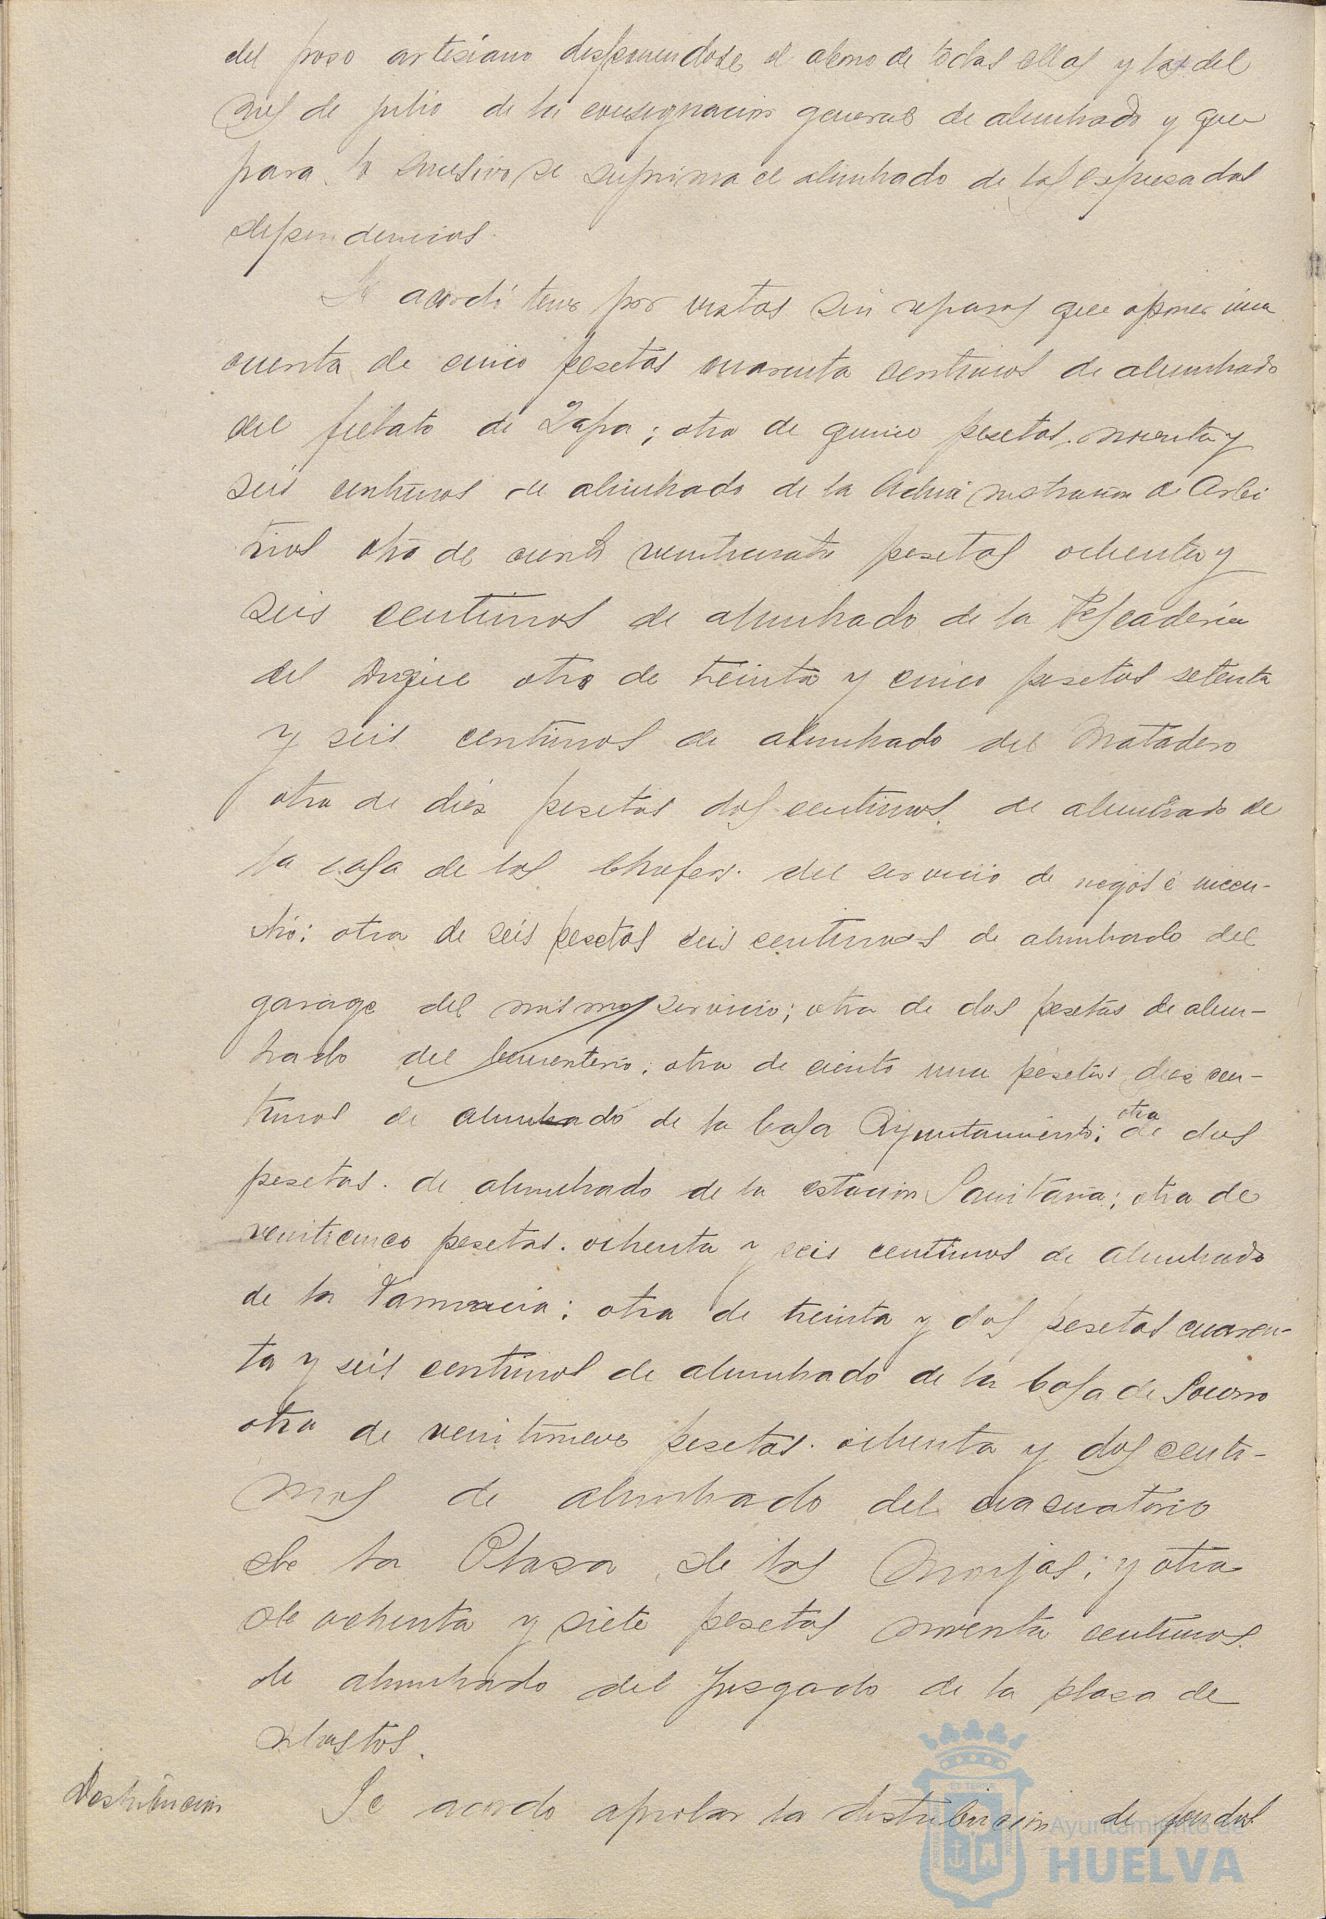 del poso artesiano disponiendose el abono de todas ellas y las del
mes de julio de la consignacion general de alumbrado y que
para lo sucesivo se suprima el alumbrado de las espresadas
dependencias.
Se acordó tener por vistas sin reparos que oponer una
cuenta de cinco pesetas cuarenta centimos de alumbrado
del fielato de Zafra; otra de quince pesetas noventa y
seis centimos de alumbrado de la Administracion de Arbi
trios otra de ciento pesetas ochenta y
seis centimos de alumbrado de la Pescaderia
del otra de treinta y cinco pesetas setenta
y seis centimos de alumbrado del Matadero
otra de diez pesetas dos centimos de alumbrado de
la casa de los Chofers del servicio de riegos é incen-
dio; otra de seis pesetas seis centimos de alumbrado del
garage del mismo servicio; otra de dos pesetas de alum-
brado del Cementerio; otra de ciento una pesetas diez cen-
timos de alumbrado de la Casa Ayuntamiento; otra de dos
pesetas de alumbrado de la estacion Sanitaria; otra de
veinticinco pesetas ochenta y seis centimos de alumbrado
de la Farmacia; otra de treinta y dos pesetas cuaren-
ta y seis centimos de alumbrado de la Casa de Socorro
otra de veintinueve pesetas ochenta y dos centi-
mos de alumbrado del evacuatorio
de la Plaza de las Monjas; y otra
de ochenta y siete pesetas noventa centimos
de alumbrado del juzgado de la plaza de
abastos.
Distribucion
Se acordo aprobar la distribucion de fondos
Ayuntamiento de
HUELVA